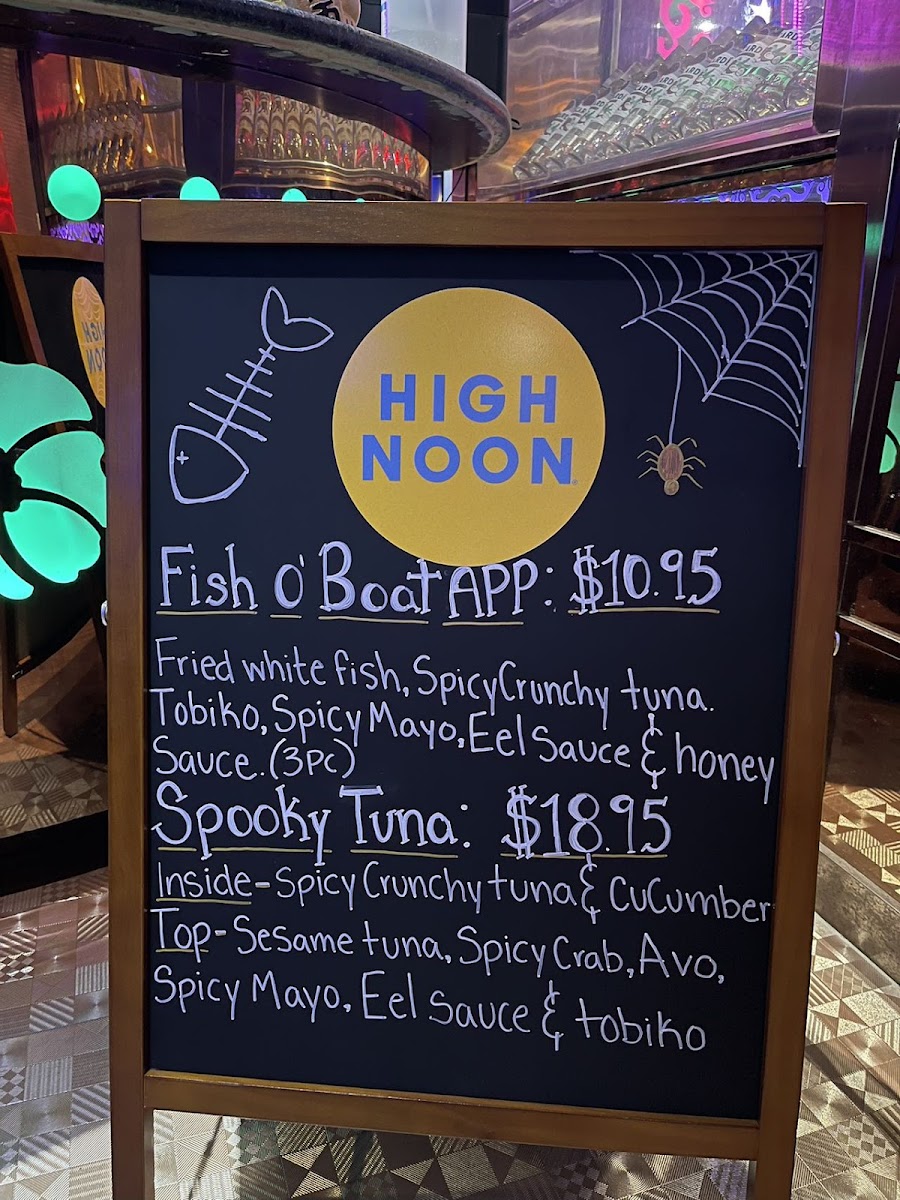 HIGH
NOON
Fish O' Boat APP: $10.95
Fried white fish, Spicy Crunchy tuna.
Tobiko, Spicy Mayo, Eel Sauce & honey
Sauce. (3pc)
Spooky Tuna: $18.95
Inside - Spicy Crunchy tuna & Cucumber
Top - Sesame tuna, Spicy Crab, Avo,
Spicy Mayo, Eel Sauce & tobiko
HIGH
NOON